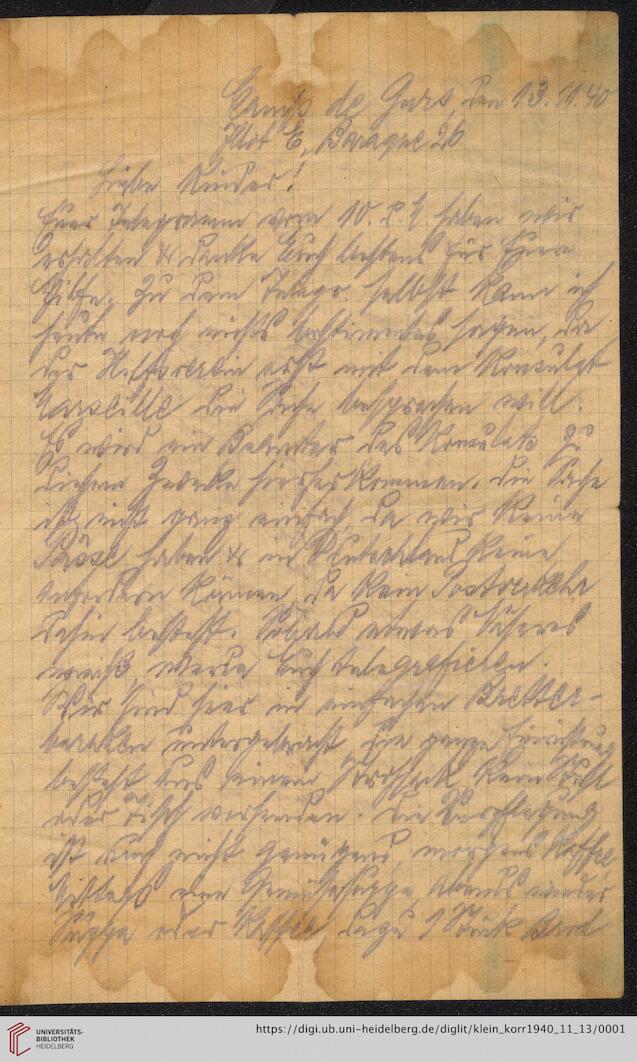 Camp de Gurs, den 13.11.40
Ilot E, Baraque 26
Liebe Kinder!
Euer Telegramm vom 10. d. M. haben wir
erhalten & danke Euch bestens für Euere
Hilfe. Zu dem Telegr. selbst kann ich
heute noch nichts bestimmtes sagen, da
der Hilfsverein erst mit dem Konsulat
Marseille die Sache besprechen will.
Es wird ein Beamter des Konsulats zu
diesem Zwecke hierher kommen. Die Sache
ist nicht ganz einfach, da wir keine
Pässe haben & in Deutschland keine
anfordern können, da kein Postverkehr
dahin besteht. Sobald etwas Näheres
weiß, werde Euch telegrafieren.
Wir sind hier in einfachen Bretter-
baracken untergebracht, die ganze Einrichtung
besteht aus einem Strohsack. Kein Stuhl
oder Tisch vorhanden. Die Verpflegung
ist auch nicht genügend, morgens Kaffee,
Mittags eine Gemüsesuppe, Abends wieder
Suppe oder Kaffee dazu 1 Stück Brot
UNIVERSITÄTS-
BIBLIOTHEK
HEIDELBERG
https://digi.ub.uni-heidelberg.de/diglit/klein_korr1940_11_13/0001